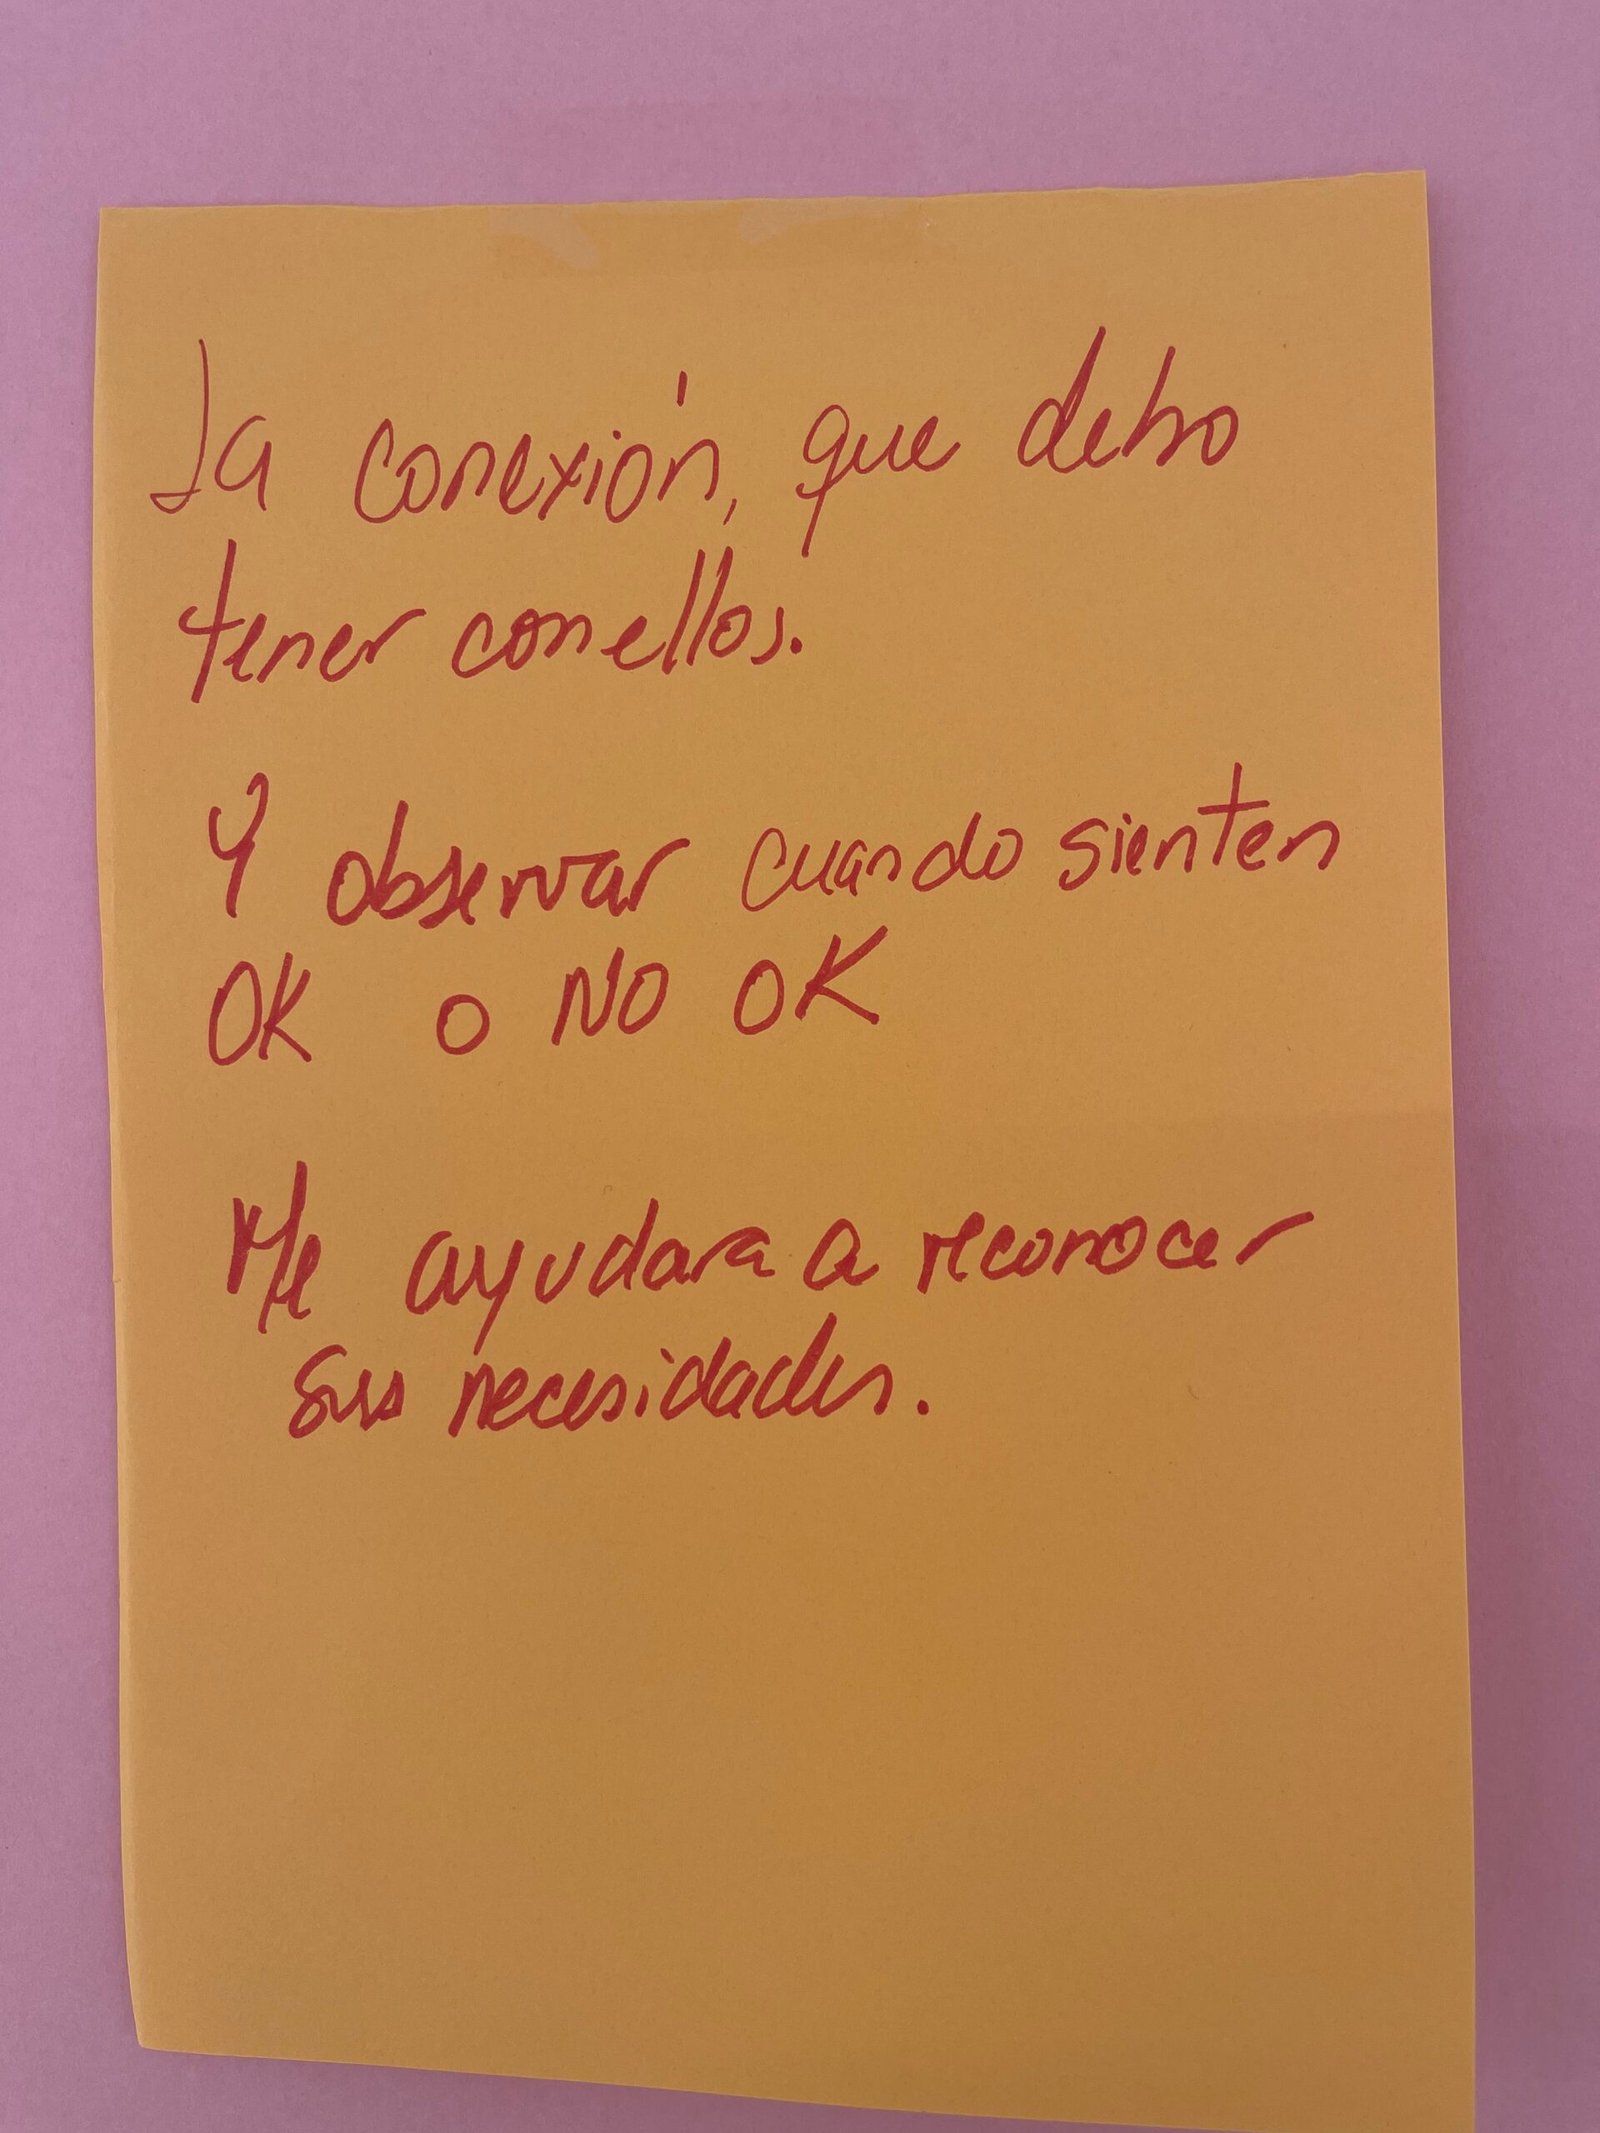 La conexión, que debo
tener con ellos.
Y observar cuando sienten
OK o NO OK
Me ayudara a reconocer
sus necesidades.